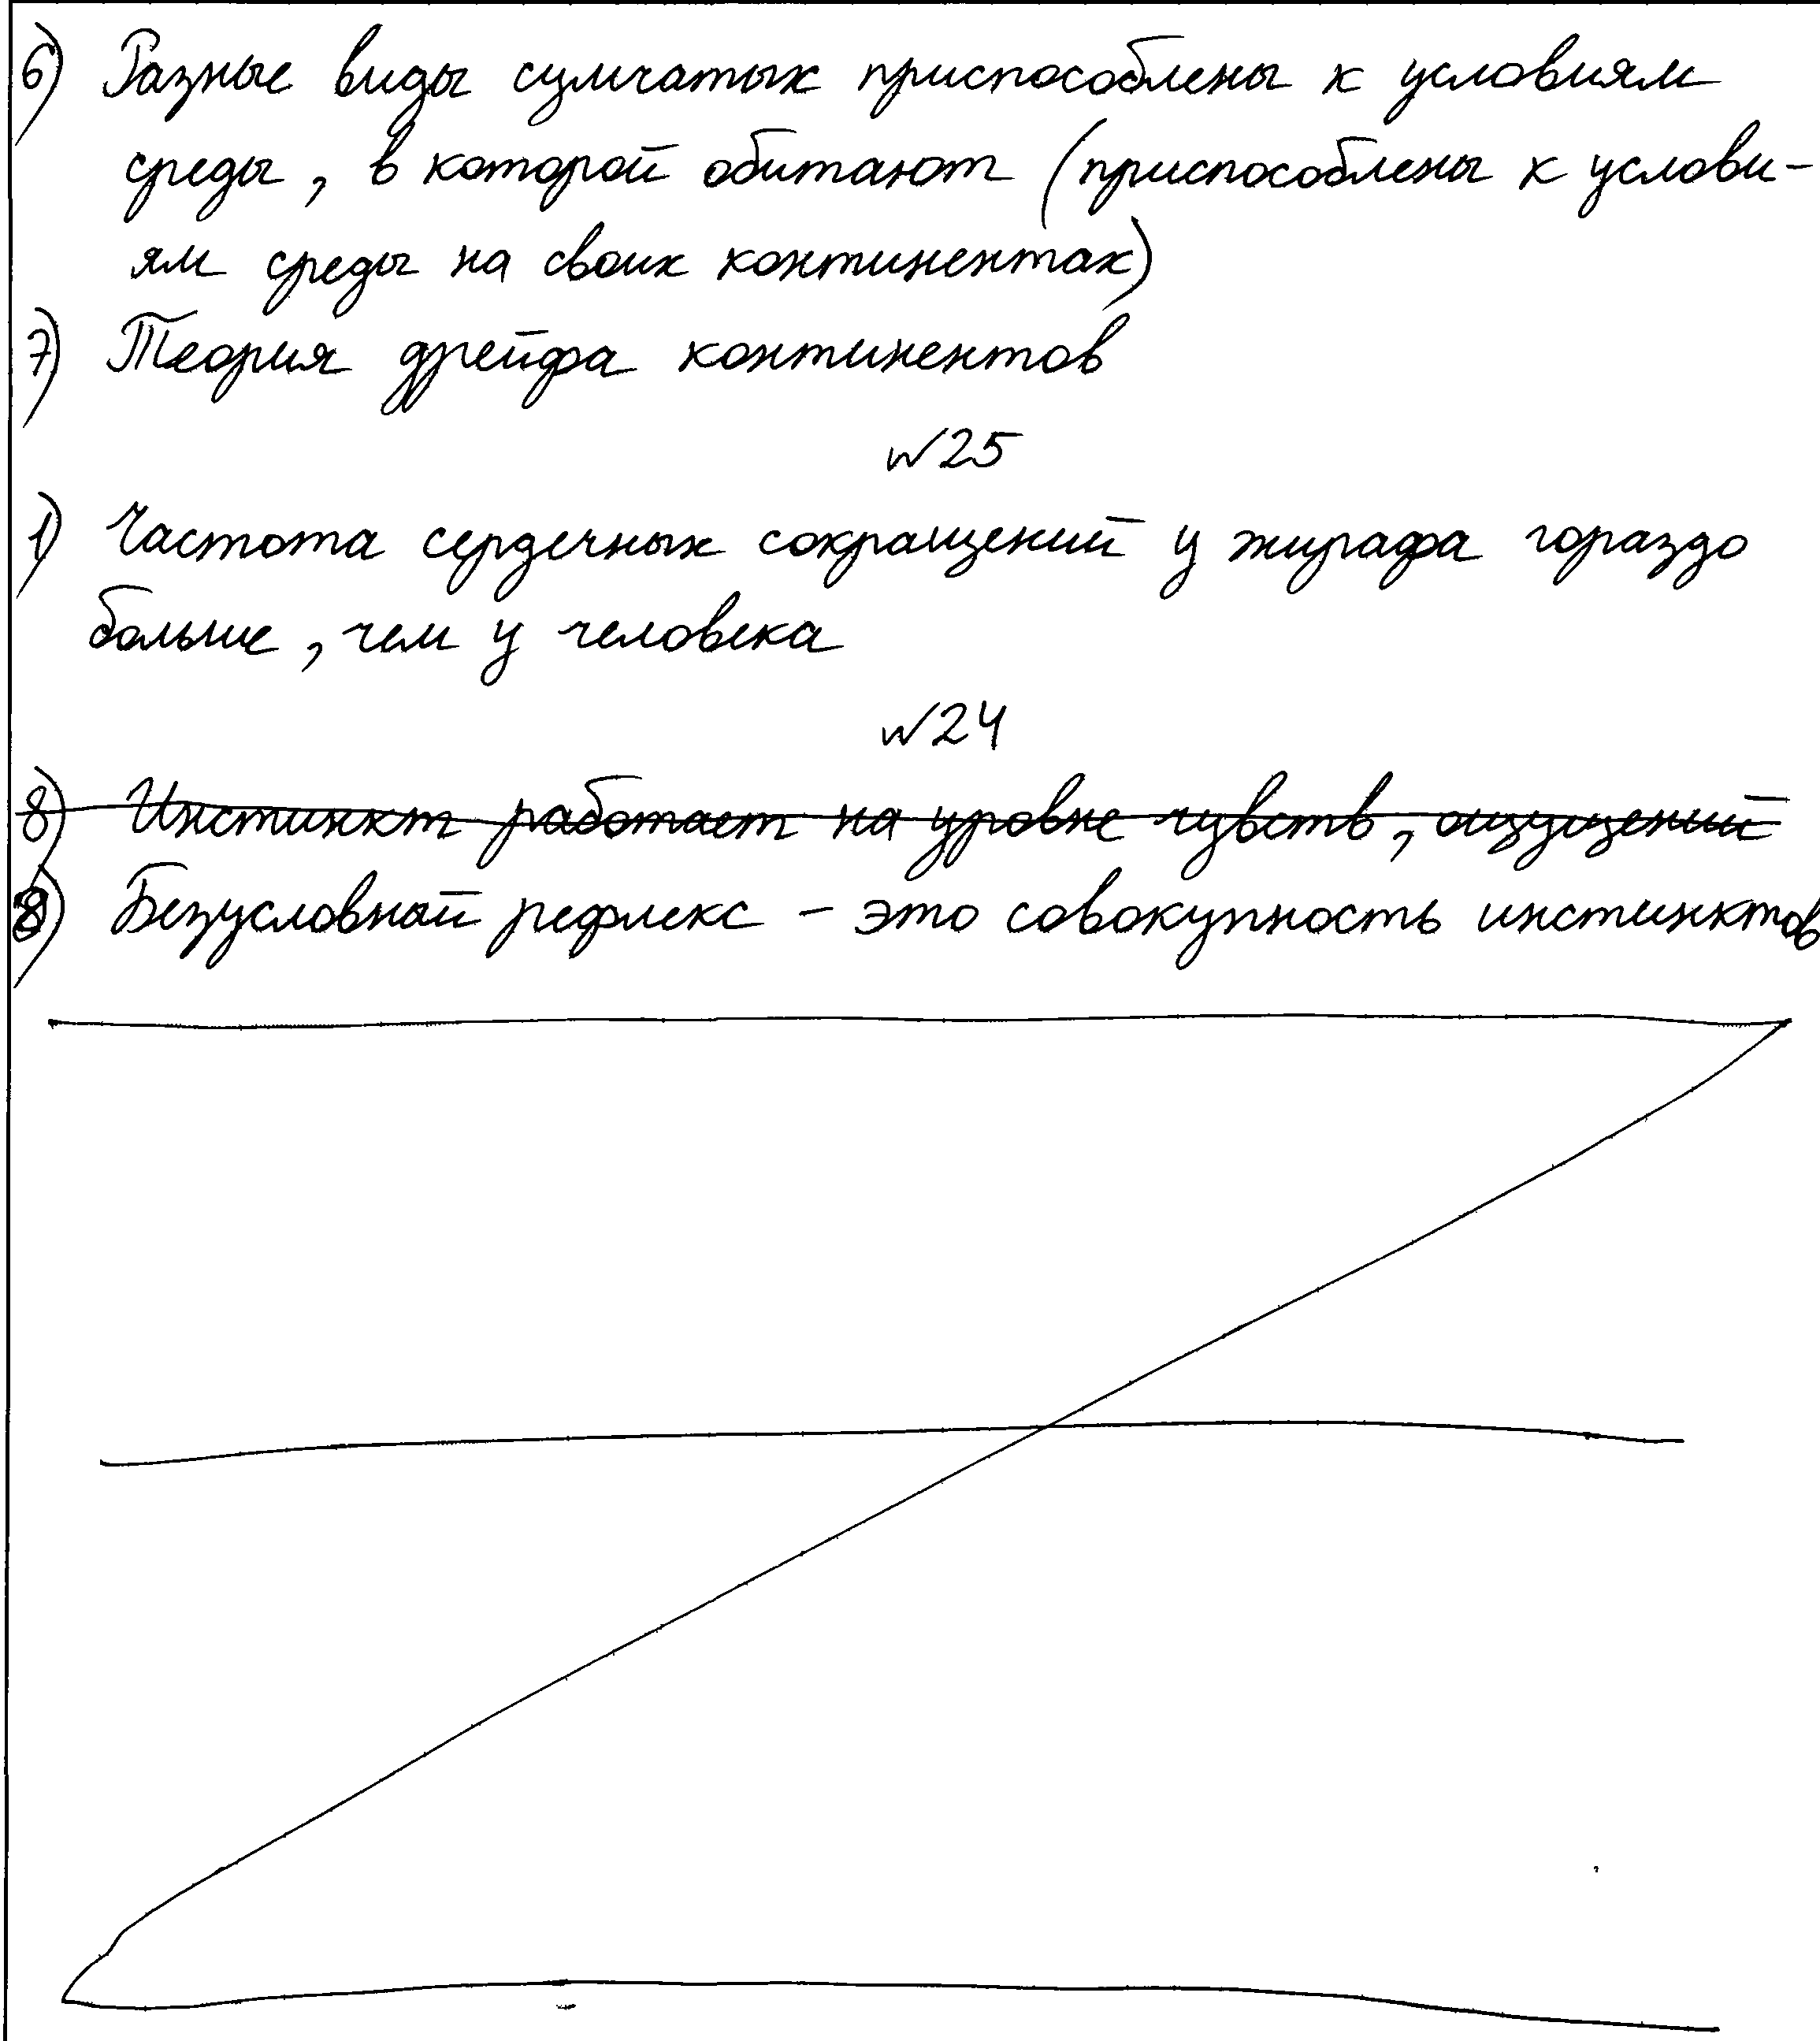 6) Разные виды сумчатых приспособлены к условиям
среды, в которой обитают (приспособлены к услови-
ям среды на своих континентах)
7) Теория дрейфа континентов
№25
1) Частота сердечных сокращений у жирафа гораздо
больше, чем у человека
№24
8) Инстинкт работает на уровне чувств, ощущений
8) Безусловный рефлекс – это совокупность инстинктов